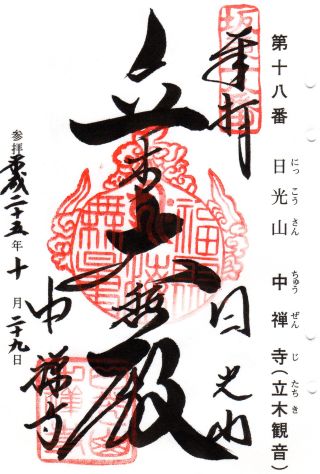 第十八番 日光山 中禅寺(立木観音)
にっこうさん ちゅうぜんじ たちき
奉拝
日光山
立木大悲殿
中禅寺
参拝平成二十五年十月二十九日